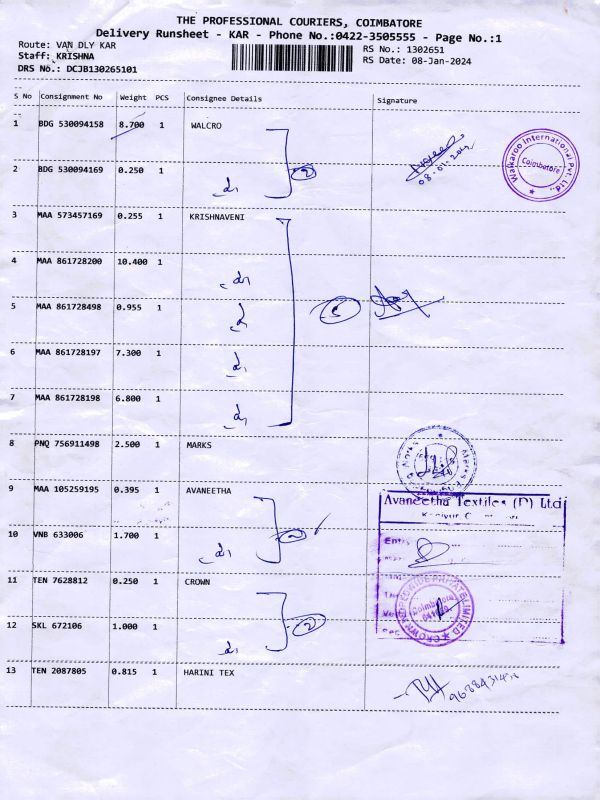 THE PROFESSIONAL COURIERS, COIMBATORE
Delivery Runsheet - KAR - Phone No.:0422-3505555 - Page No.:1
Route: VAN DLY KAR
RS No.: 1302651
Staff: KRISHNA
RS Date: 08-Jan-2024
DRS No.: DCJB130265101
S No Consignment No Weight PCS Consignee Details Signature
1 BDG 530094158 8.700 1 WALCRO
2 BDG 530094169 0.250 1
Walkaroo International Pvt. Ltd.
Coimbatore
3 MAA 573457169 0.255 1 KRISHNAVENI
4 MAA 861728200 10.400 1
5 MAA 861728498 0.955 1
6 MAA 861728197 7.300 1
7 MAA 861728198 6.800 1
8 PNQ 756911498 2.500 1 MARKS
9 MAA 105259195 0.395 1 AVANEETHA
Avaneetha Textiles (P) Ltd
10 VNB 633006 1.700 1
11 TEN 7628812 0.250 1 CROWN
Coimbatore
12 SKL 672106 1.000 1
13 TEN 2087805 0.815 1 HARINI TEX